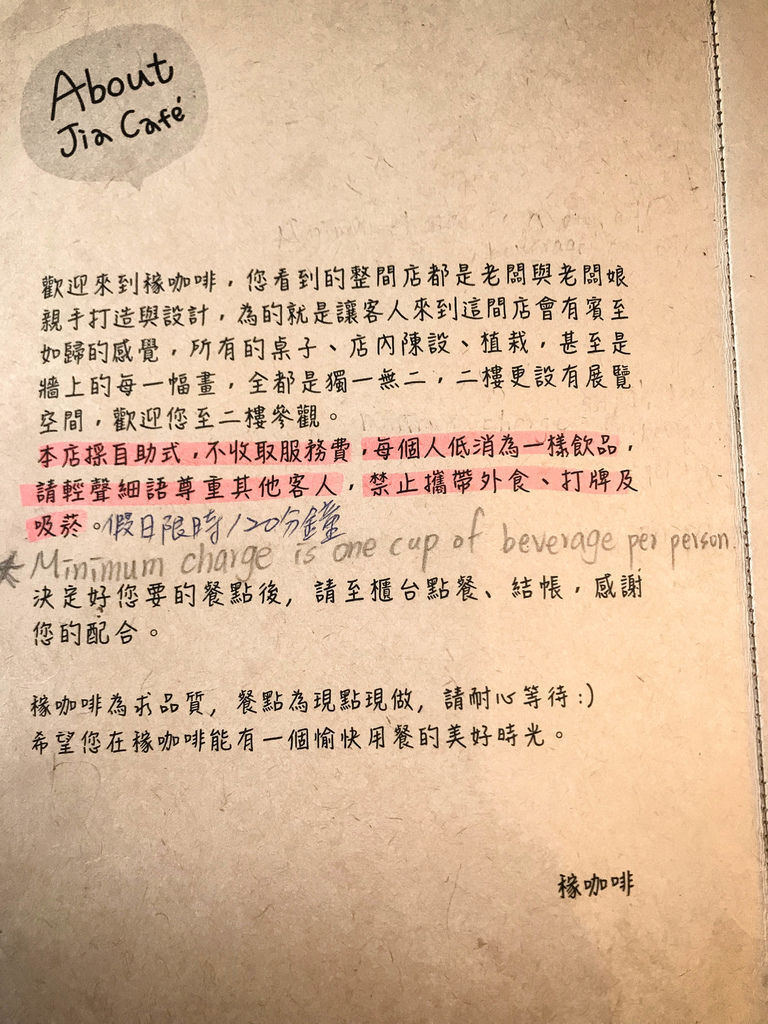 About
Jia Café
歡迎來到稼咖啡，您看到的整間店都是老闆與老闆娘
親手打造與設計，為的就是讓客人來到這間店會有賓至
如歸的感覺，所有的桌子、店內陳設、植栽，甚至是
牆上的每一幅畫，全都是獨一無二，二樓更設有展覽
空間，歡迎您至二樓參觀。
本店採自助式，不收取服務費，每個人低消為一樣飲品，
請輕聲細語尊重其他客人，禁止攜帶外食、打牌及
吸菸。假日限時120分鐘
★Minimum charge is one cup of beverage per person.
決定好您要的餐點後，請至櫃台點餐、結帳，感謝
您的配合。
稼咖啡為求品質，餐點為現點現做，請耐心等待:)
希望您在稼咖啡能有一個愉快用餐的美好時光。
稼咖啡